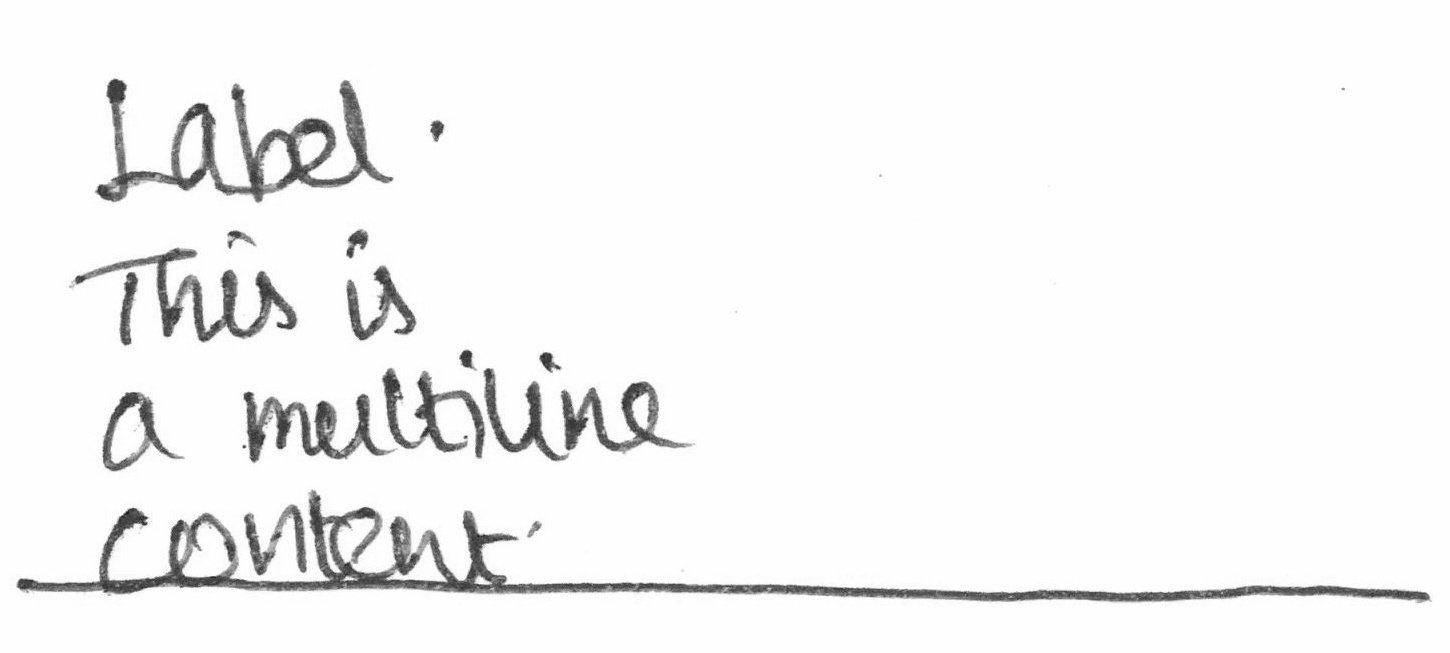 Label.
This is
a multiline
content